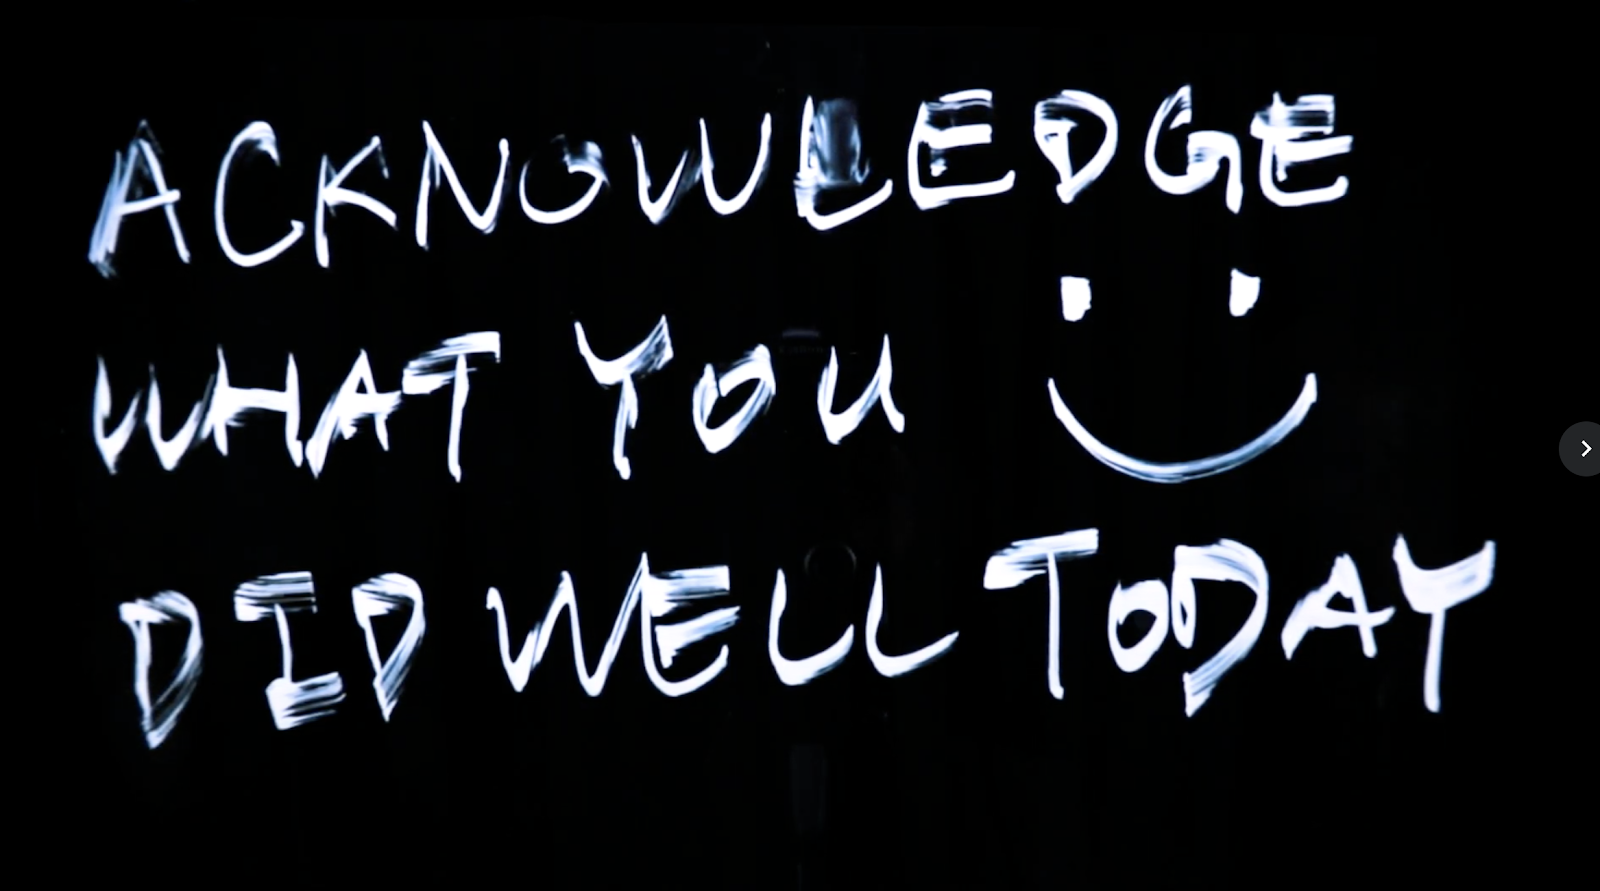 ACKNOWLEDGE
WHAT YOU
DID WELL TODAY